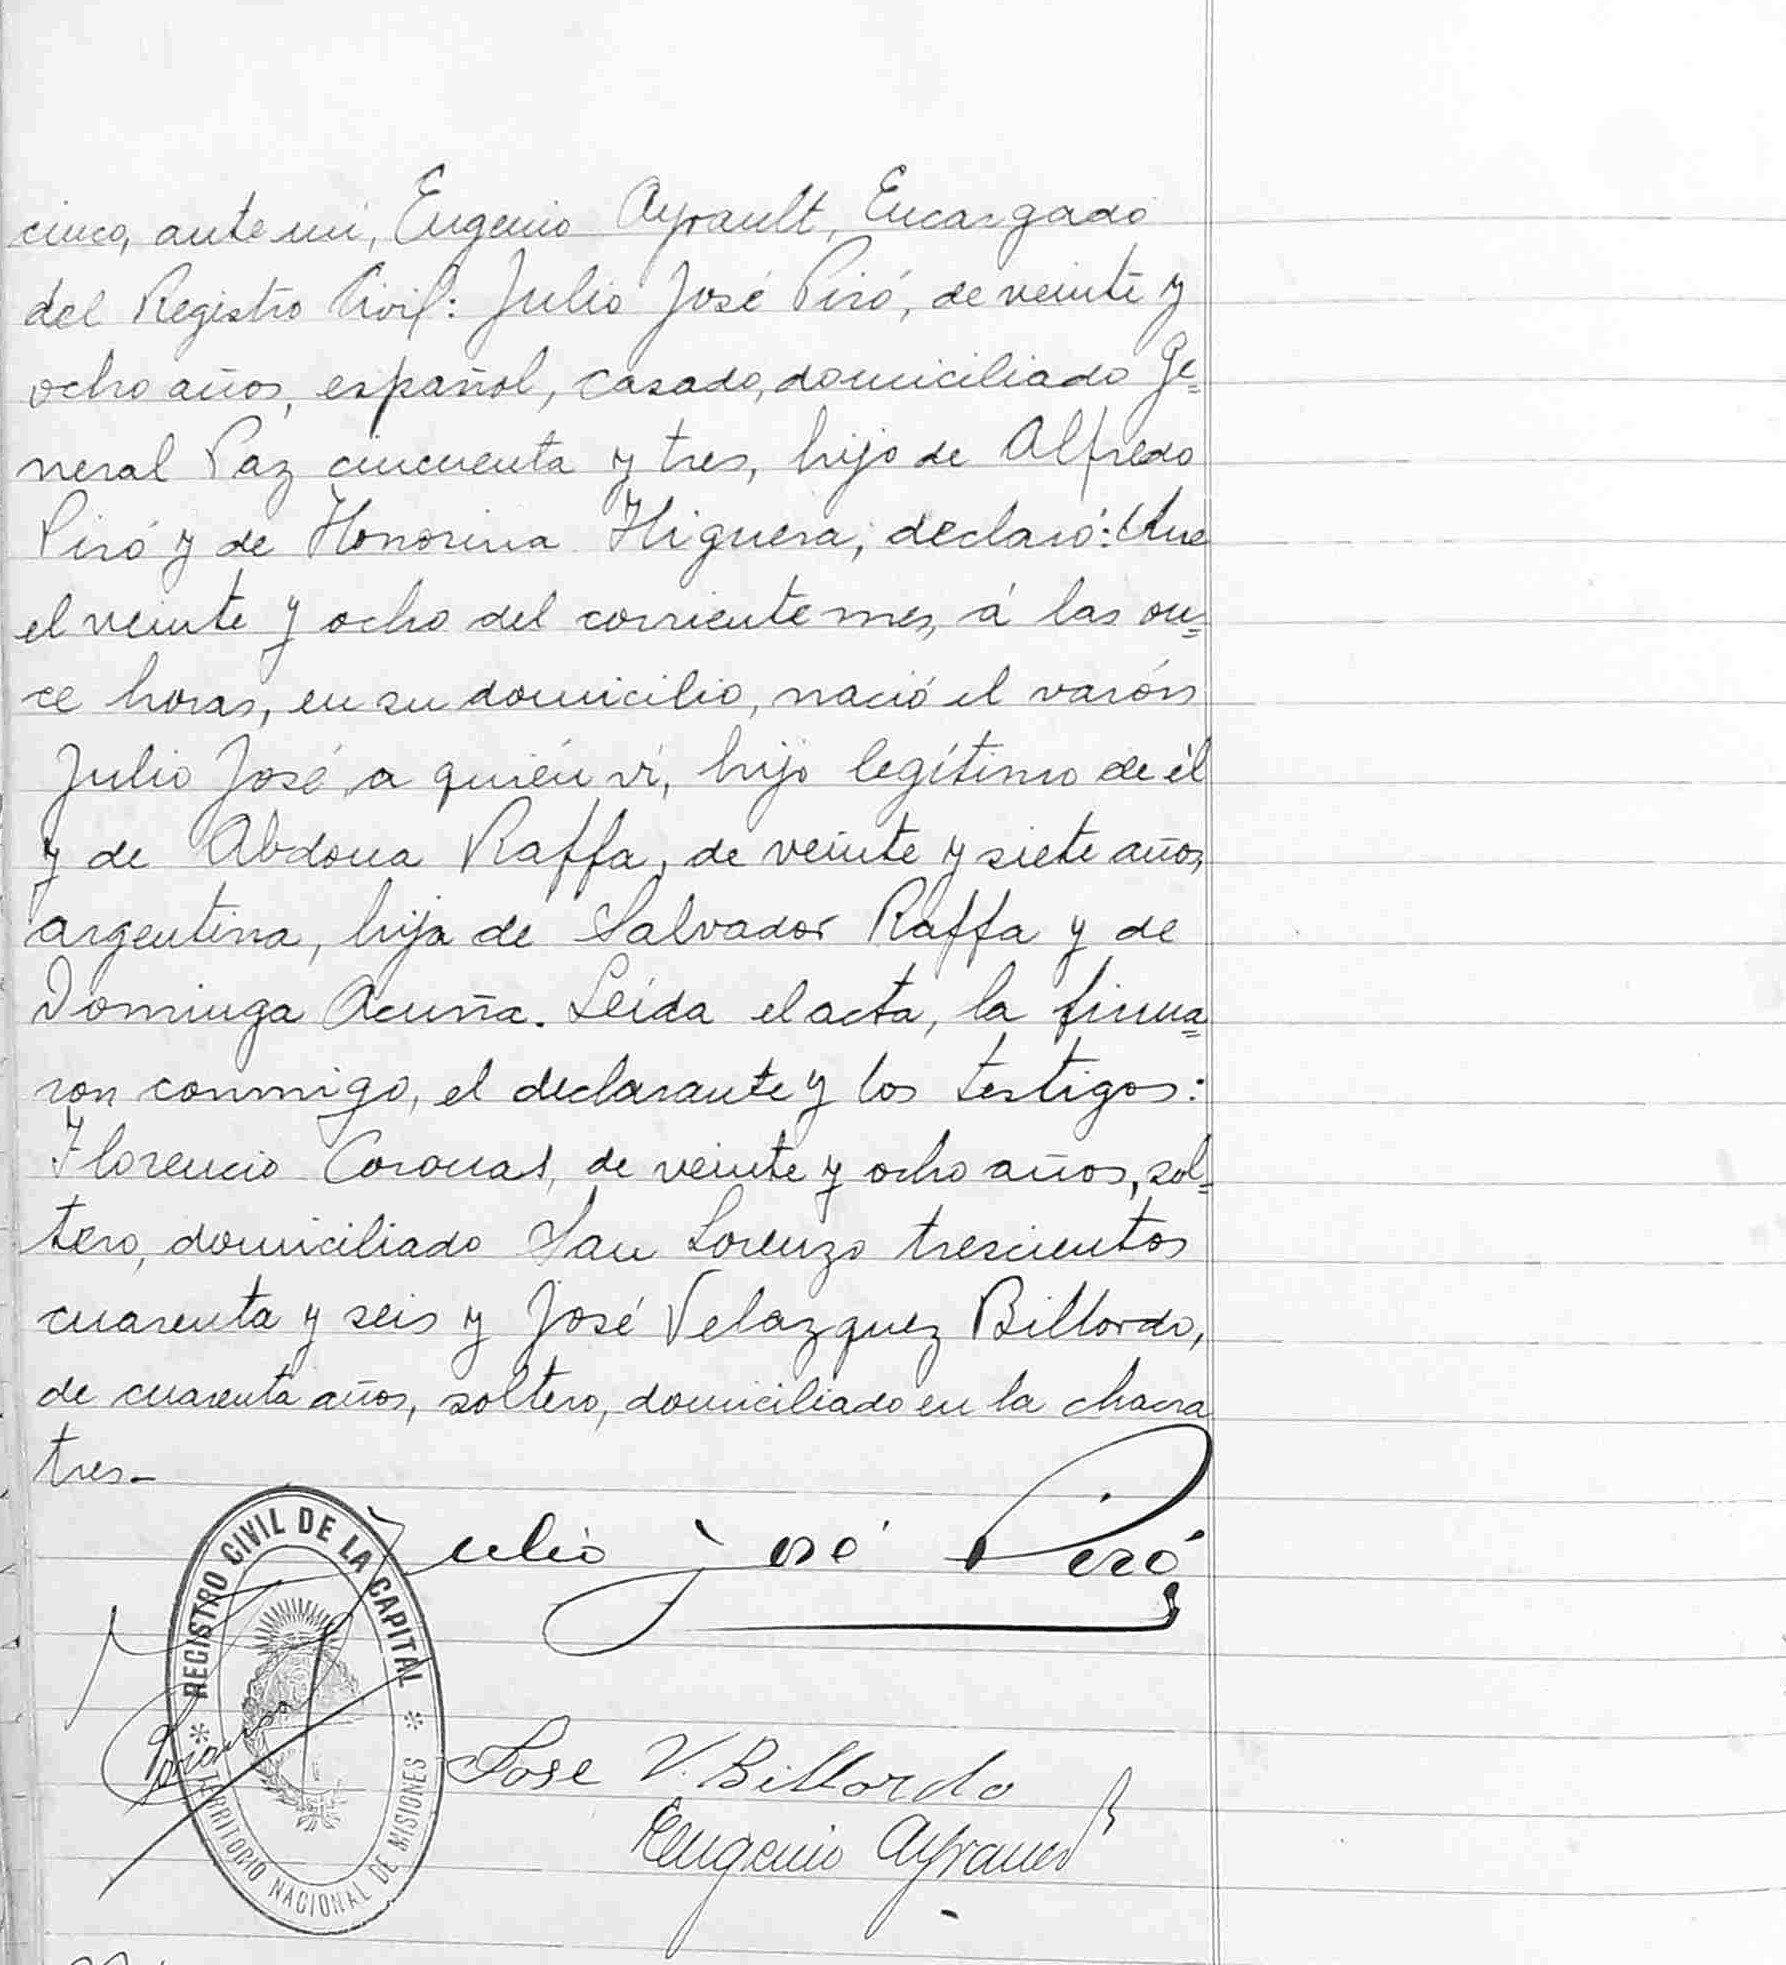 cinco, ante mi, Eugenio Ayrault, Encargado
del Registro Civil: Julio José Piró, de veinte y
ocho años, español, casado, domiciliado Ge=
neral Paz cincuenta y tres, hijo de Alfredo
Piró y de Honorina Higuera, declaró: Que
el veinte y ocho del corriente mes, á las on=
ce horas, en su domicilio, nació el varón
Julio José a quién vi, hijo legítimo de él
y de Abdona Raffa, de veinte y siete años,
argentina, hija de Salvador Raffa y de
Dominga Acuña. Leída el acta, la firma=
ron conmigo, el declarante y los testigos:
Florencio Coronas, de veinte y ocho años, sol=
tero, domiciliado San Lorenzo trescientos
cuarenta y seis y José Velazquez Billordo,
de cuarenta años, soltero, domiciliado en la chacra
tres-
Julio José Piró
REGISTRO CIVIL DE LA CAPITAL
* TERRITORIO NACIONAL DE MISIONES *
Jose V. Billordo
Eugenio Ayrault